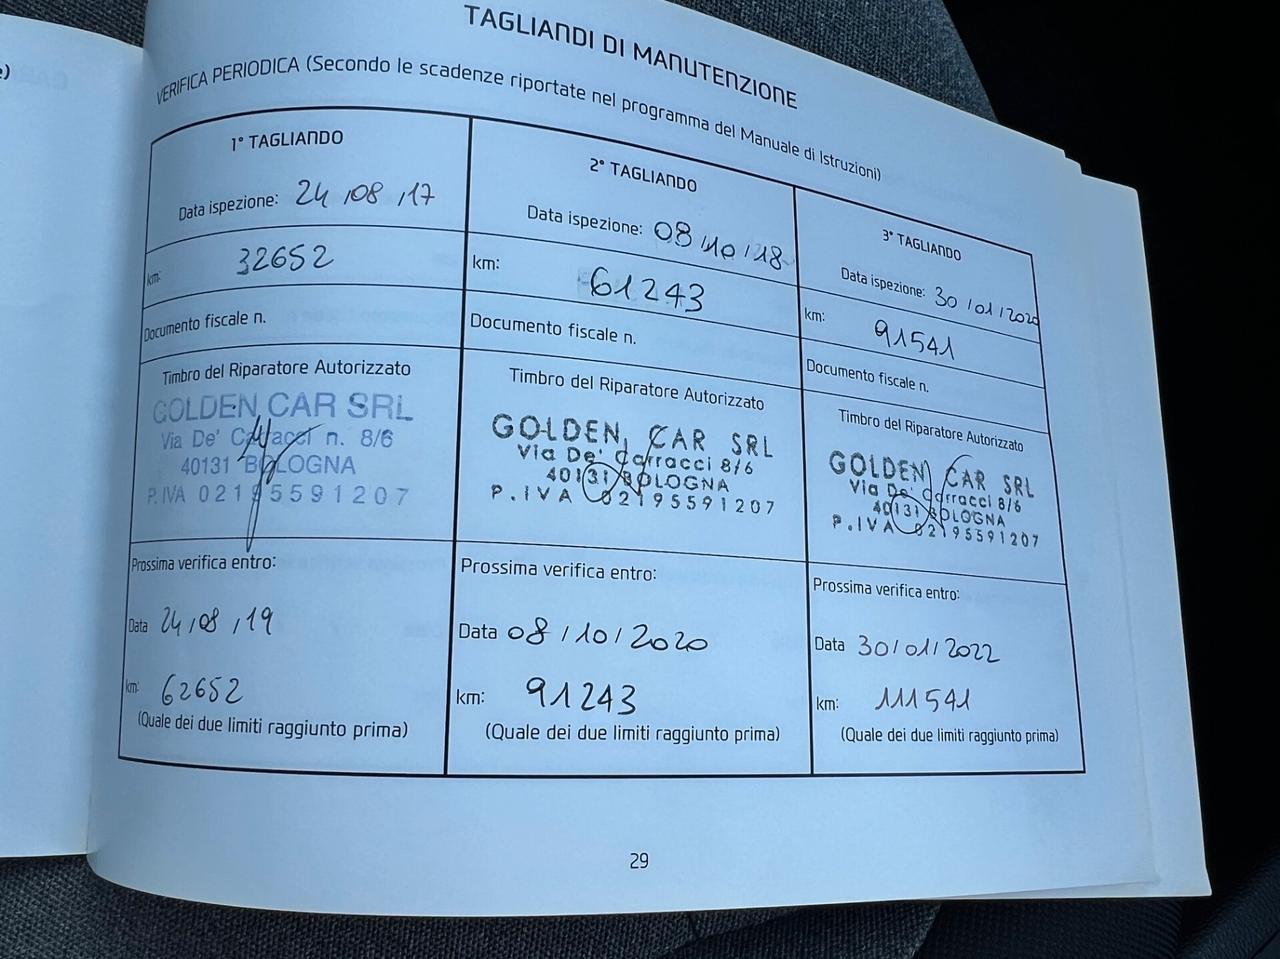 TAGLIANDI DI MANUTENZIONE
VERIFICA PERIODICA (Secondo le scadenze riportate nel programma del Manuale di Istruzioni)
1° TAGLIANDO
Data ispezione: 24/08/17
km: 32652
Documento fiscale n.
Timbro del Riparatore Autorizzato
GOLDEN CAR SRL
Via De' Carracci n. 8/6
40131 BOLOGNA
P. IVA 02195591207
Prossima verifica entro:
Data 24/08/19
km: 62652
(Quale dei due limiti raggiunto prima)
2° TAGLIANDO
Data ispezione: 08/10/18
km: 61243
Documento fiscale n.
Timbro del Riparatore Autorizzato
GOLDEN CAR SRL
Via De' Carracci 8/6
40131 BOLOGNA
P.IVA 02195591207
Prossima verifica entro:
Data 08/10/2020
km: 91243
(Quale dei due limiti raggiunto prima)
3° TAGLIANDO
Data ispezione: 30/01/2020
km: 91541
Documento fiscale n.
Timbro del Riparatore Autorizzato
GOLDEN CAR SRL
Via De' Carracci 8/6
40131 BOLOGNA
P.IVA 02195591207
Prossima verifica entro:
Data 30/01/2022
km: 111541
(Quale dei due limiti raggiunto prima)
29